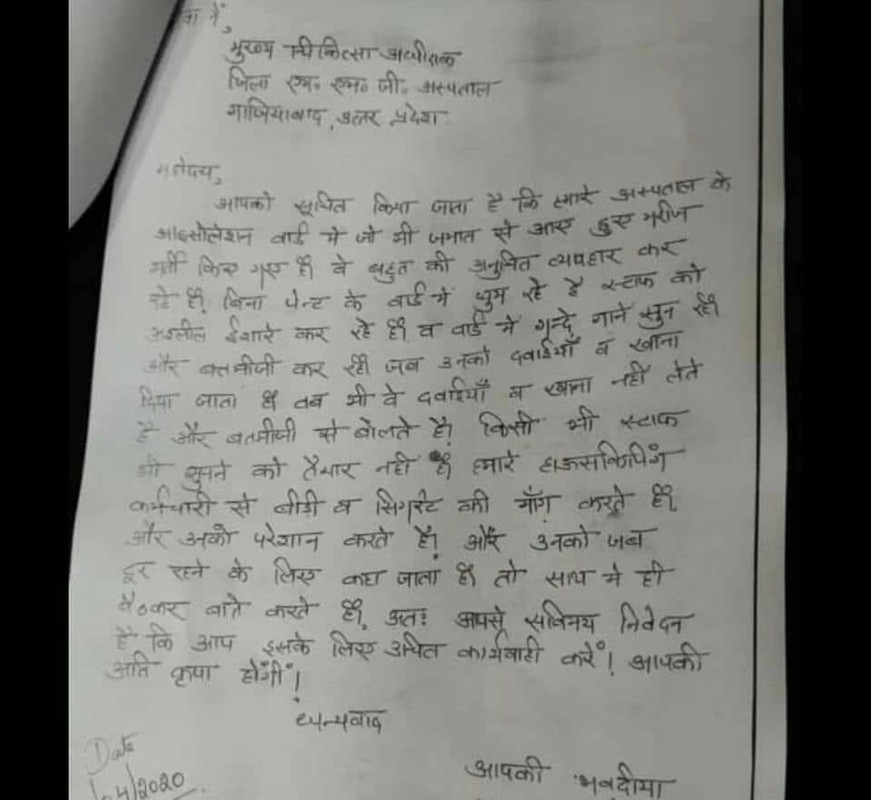 वा में,
मुख्य चिकित्सा अधीक्षक
जिला एम॰ एम॰ जी॰ अस्पताल
गाजियाबाद, उत्तर प्रदेश
महोदय,
आपको सूचित किया जाता है कि हमारे अस्पताल के
आइसोलेशन वार्ड मे जो भी जमात से आए हुए मरीज
भर्ती किए गए हैं वे बहुत की अनुचित व्यवहार कर
रहे हैं, बिना पेन्ट के वार्ड में घुम रहे है स्टाफ को
अश्लील ईशारे कर रहे हैं व वार्ड मे गन्दे गाने सुन रहें
और बतमीजी कर रहें जब उनको दवाईयाँ व खाना
दिया जाता है तब भी वे दवाईयाँ व खाना नही लेते
है और बतमीजी से बोलते है। किसी भी स्टाफ
की सुनने को तैयार नही है हमारे हाऊसकिपिंग
कर्मचारी से बीडी व सिगरेट की माँग करते हैं,
और उनको परेशान करते है। और उनको जब
दूर रहने के लिए कहा जाता है तो साथ मे ही
बैठकर बाते करते हैं, अतः आपसे सविनय निवेदन
है कि आप इसके लिए उचित कार्यवाही करें! आपकी
अति कृपा होगीं!
धन्यवाद
Date
04/2020
आपकी भवदीया